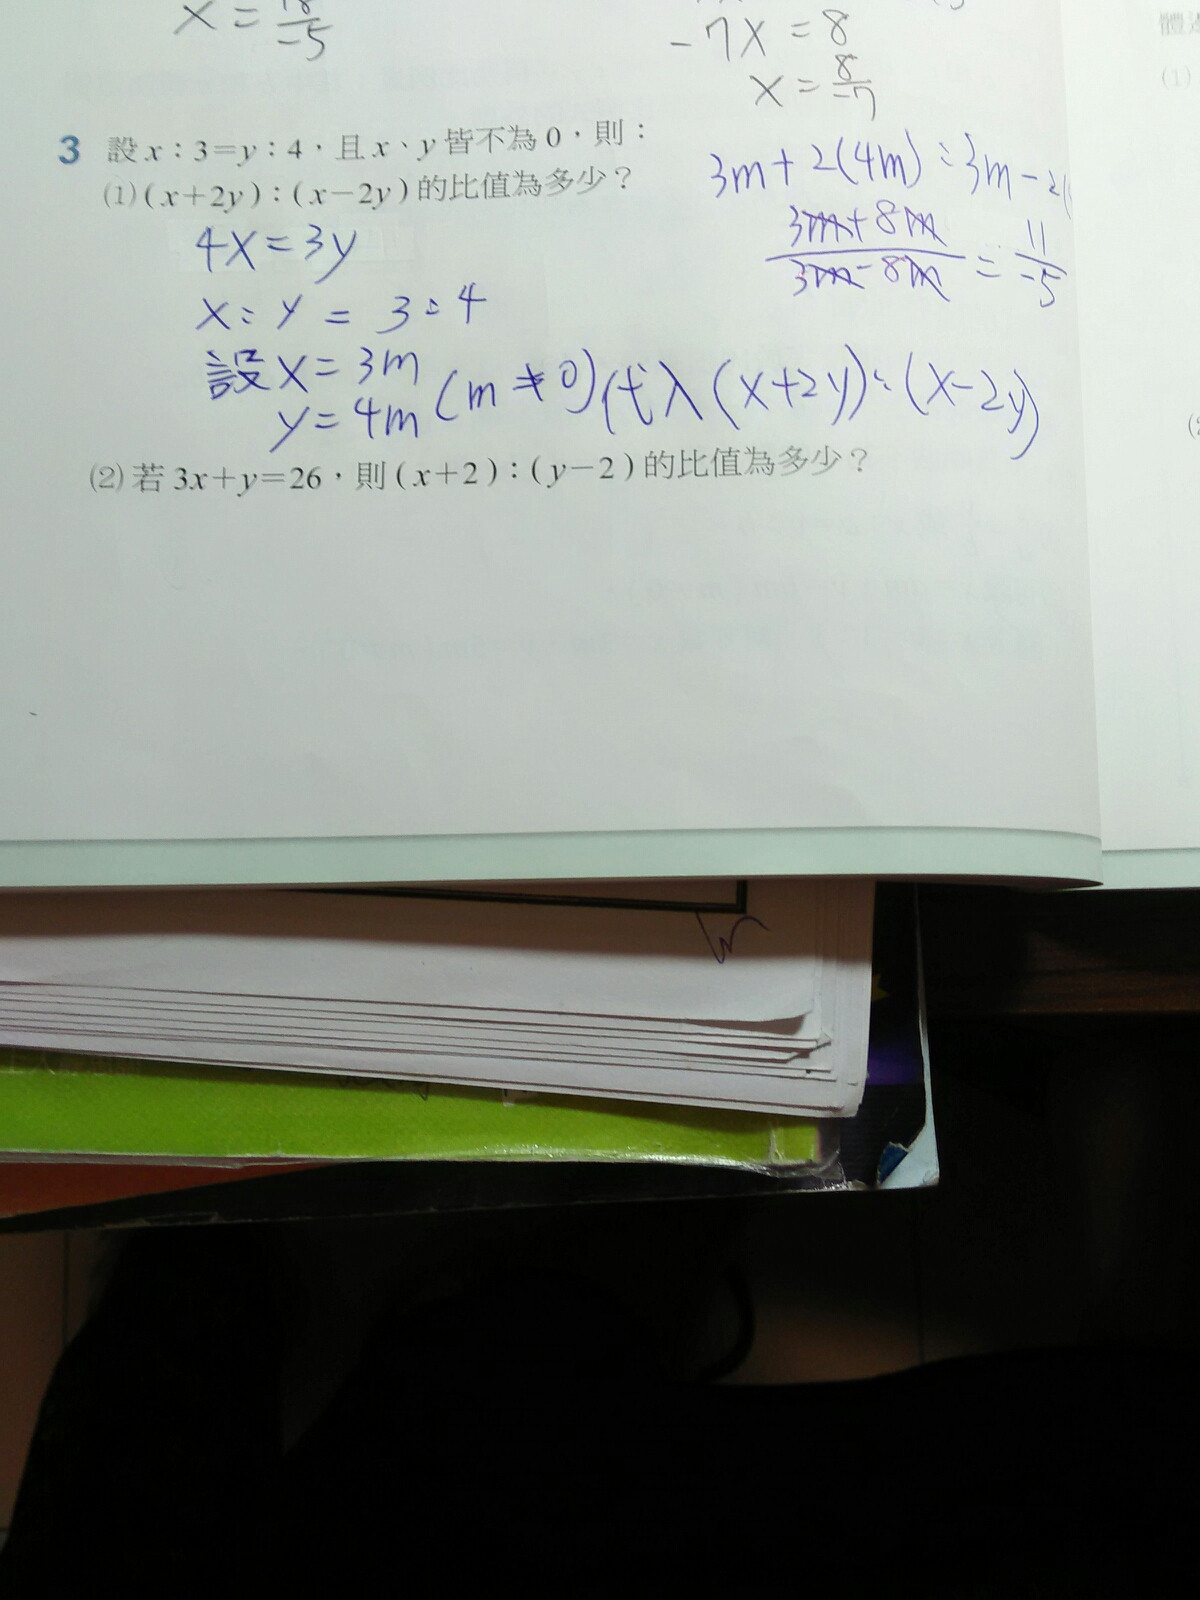 x = 18/-5
-7x = 8
x = 8/-7
3 設x:3=y:4,且x、y皆不為0,則:
(1)(x+2y):(x-2y)的比值為多少?
3m+2(4m):3m-2(
3m+8m/3m-8m = 11/-5
4x=3y
x:y = 3:4
設x=3m
y=4m (m≠0)代入(x+2y):(x-2y)
(2)若3x+y=26,則(x+2):(y-2)的比值為多少?
(1)